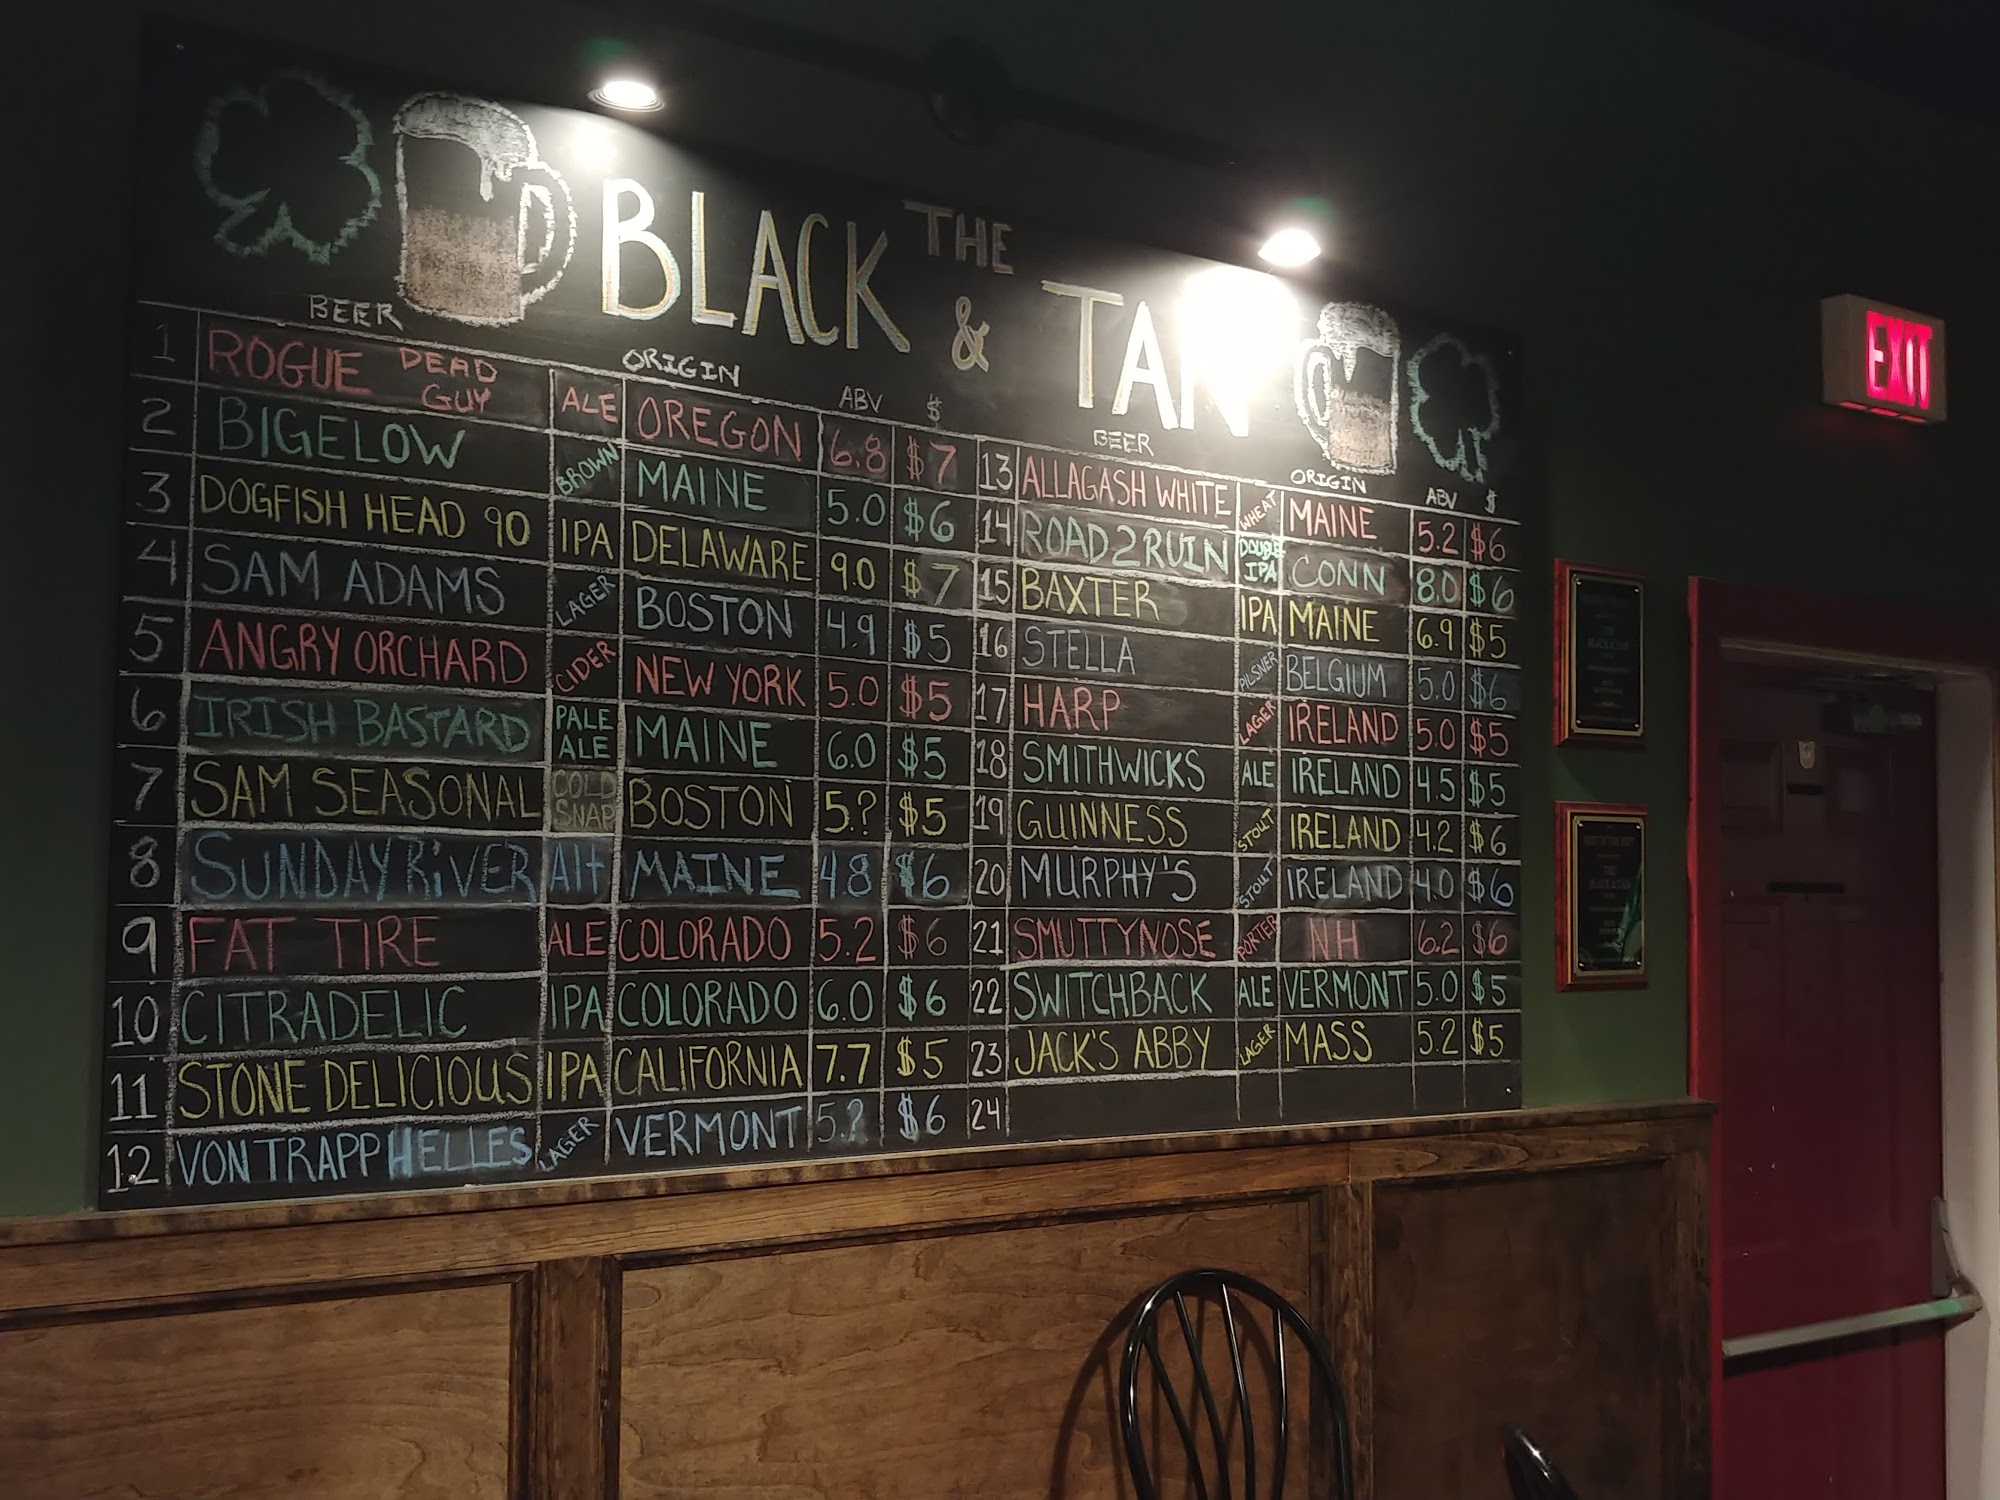 THE
BLACK & TAN
BEER ORIGIN ABV $
1 ROGUE DEAD GUY ALE OREGON 6.8 $7
2 BIGELOW BROWN MAINE 5.0 $6
3 DOGFISH HEAD 90 IPA DELAWARE 9.0 $7
4 SAM ADAMS LAGER BOSTON 4.9 $5
5 ANGRY ORCHARD CIDER NEW YORK 5.0 $5
6 IRISH BASTARD PALE ALE MAINE 6.0 $5
7 SAM SEASONAL COLD SNAP BOSTON 5.? $5
8 SUNDAY RiVER Alt MAINE 4.8 $6
9 FAT TIRE ALE COLORADO 5.2 $6
10 CITRADELIC IPA COLORADO 6.0 $6
11 STONE DELICIOUS IPA CALIFORNIA 7.7 $5
12 VON TRAPP HELLES LAGER VERMONT 5.? $6
BEER ORIGIN ABV $
13 ALLAGASH WHITE WHEAT MAINE 5.2 $6
14 ROAD 2 RUIN DOUBLE IPA CONN 8.0 $6
15 BAXTER IPA MAINE 6.9 $5
16 STELLA PILSNER BELGIUM 5.0 $6
17 HARP LAGER IRELAND 5.0 $5
18 SMITHWICKS ALE IRELAND 4.5 $5
19 GUINNESS STOUT IRELAND 4.2 $6
20 MURPHY'S STOUT IRELAND 4.0 $6
21 SMUTTYNOSE PORTER NH 6.2 $6
22 SWITCHBACK ALE VERMONT 5.0 $5
23 JACK'S ABBY LAGER MASS 5.2 $5
24
EXIT
THE
BLACK & TAN
THE
BLACK & TAN